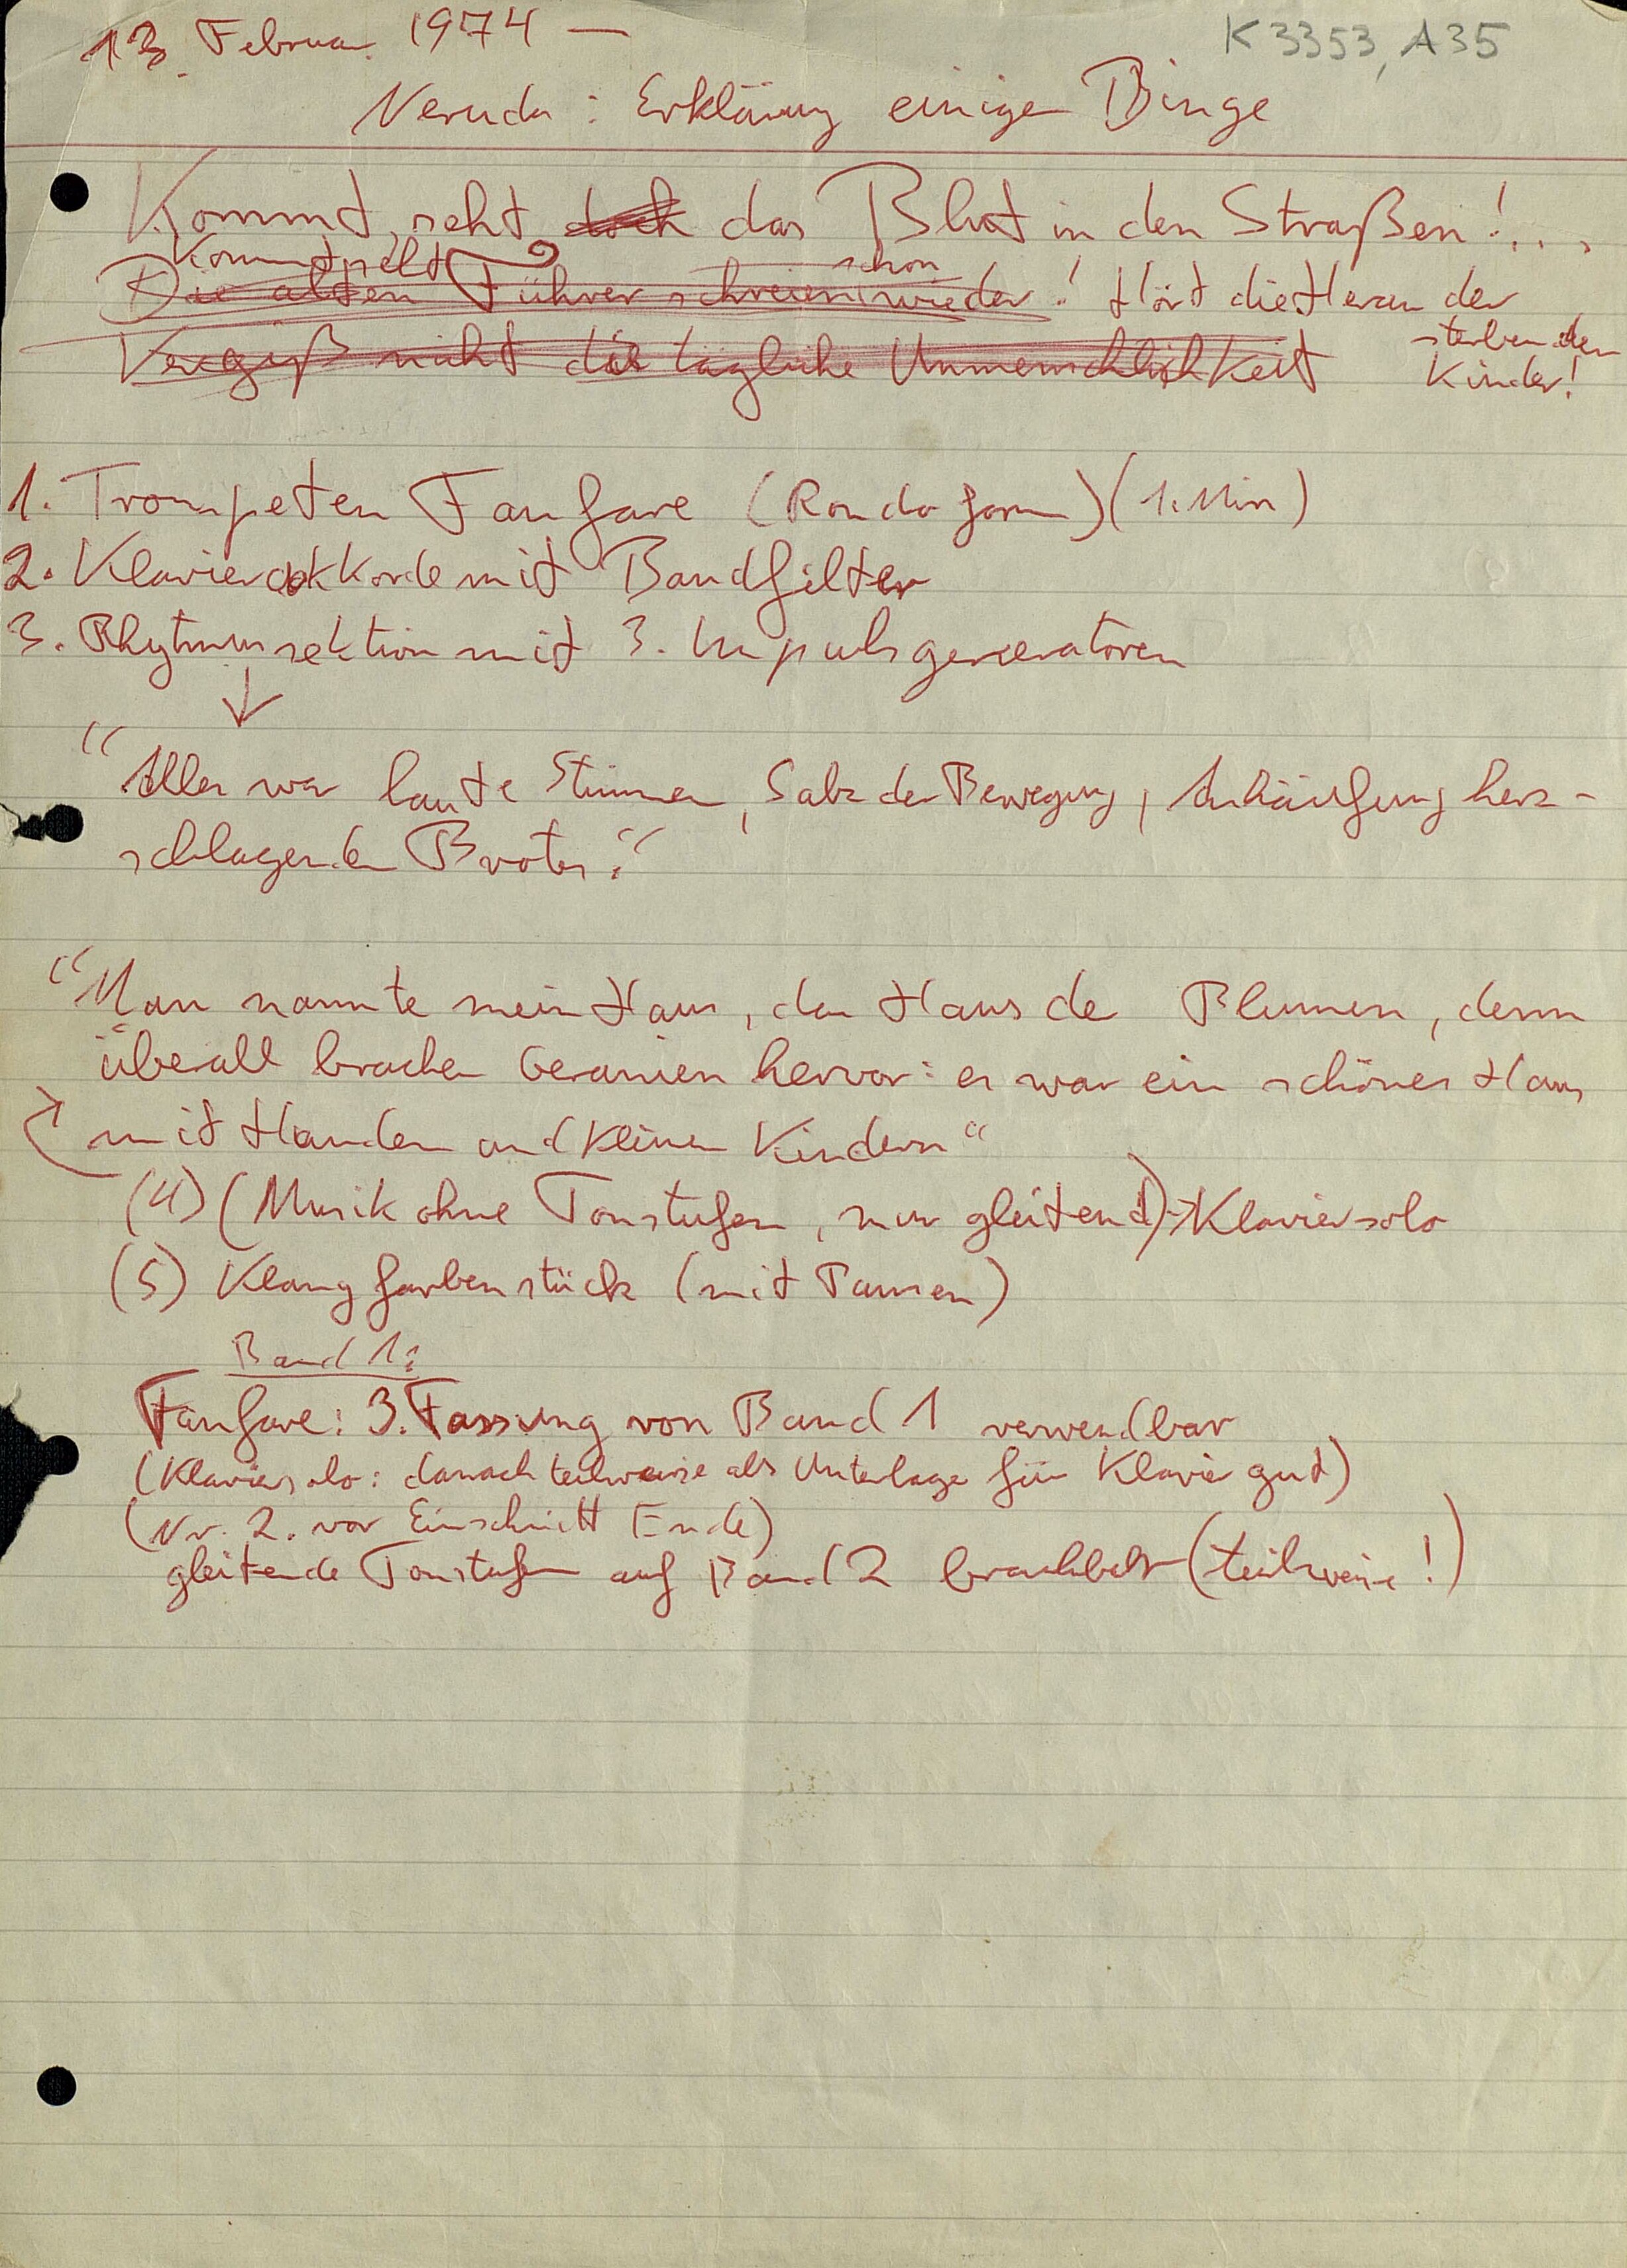 13. Februar 1974 —
K 3353, A35
Neruda: Erklärung einiger Dinge
Kommt, seht doch das Blut in den Straßen!...
Kommt, seht schon
Die alten Führer schreien wieder! Hört die Herzen der
sterbenden
Vergiß nicht die tägliche Unmenschlichkeit Kinder!
1. Trompeten Fanfare (Rondoform) (1. Min)
2. Klavierakkorde mit Bandfilter
3. Rhytmussektion mit 3. Impulsgeneratoren
↓
"Alles war laute Stimmen, Salz der Bewegung, Anhäufung herz-
schlagenden Brotes."
"Man nannte mein Haus, das Haus der Blumen, denn
überall brachen Geranien hervor: es war ein schönes Haus
mit Hunden und kleinen Kindern"
(4) (Musik ohne Tonstufen, nur gleitend) → Klaviersolo
(5) Klangfarbenstück (mit Pausen)
Band 1:
Fanfare: 3. Fassung von Band 1 verwendbar
(Klaviersolo: danach teilweise als Unterlage für Klavier gut)
(Nr. 2. vor Einschnitt Ende)
gleitende Tonstufen auf Band 2 brauchbar (teilweise!)